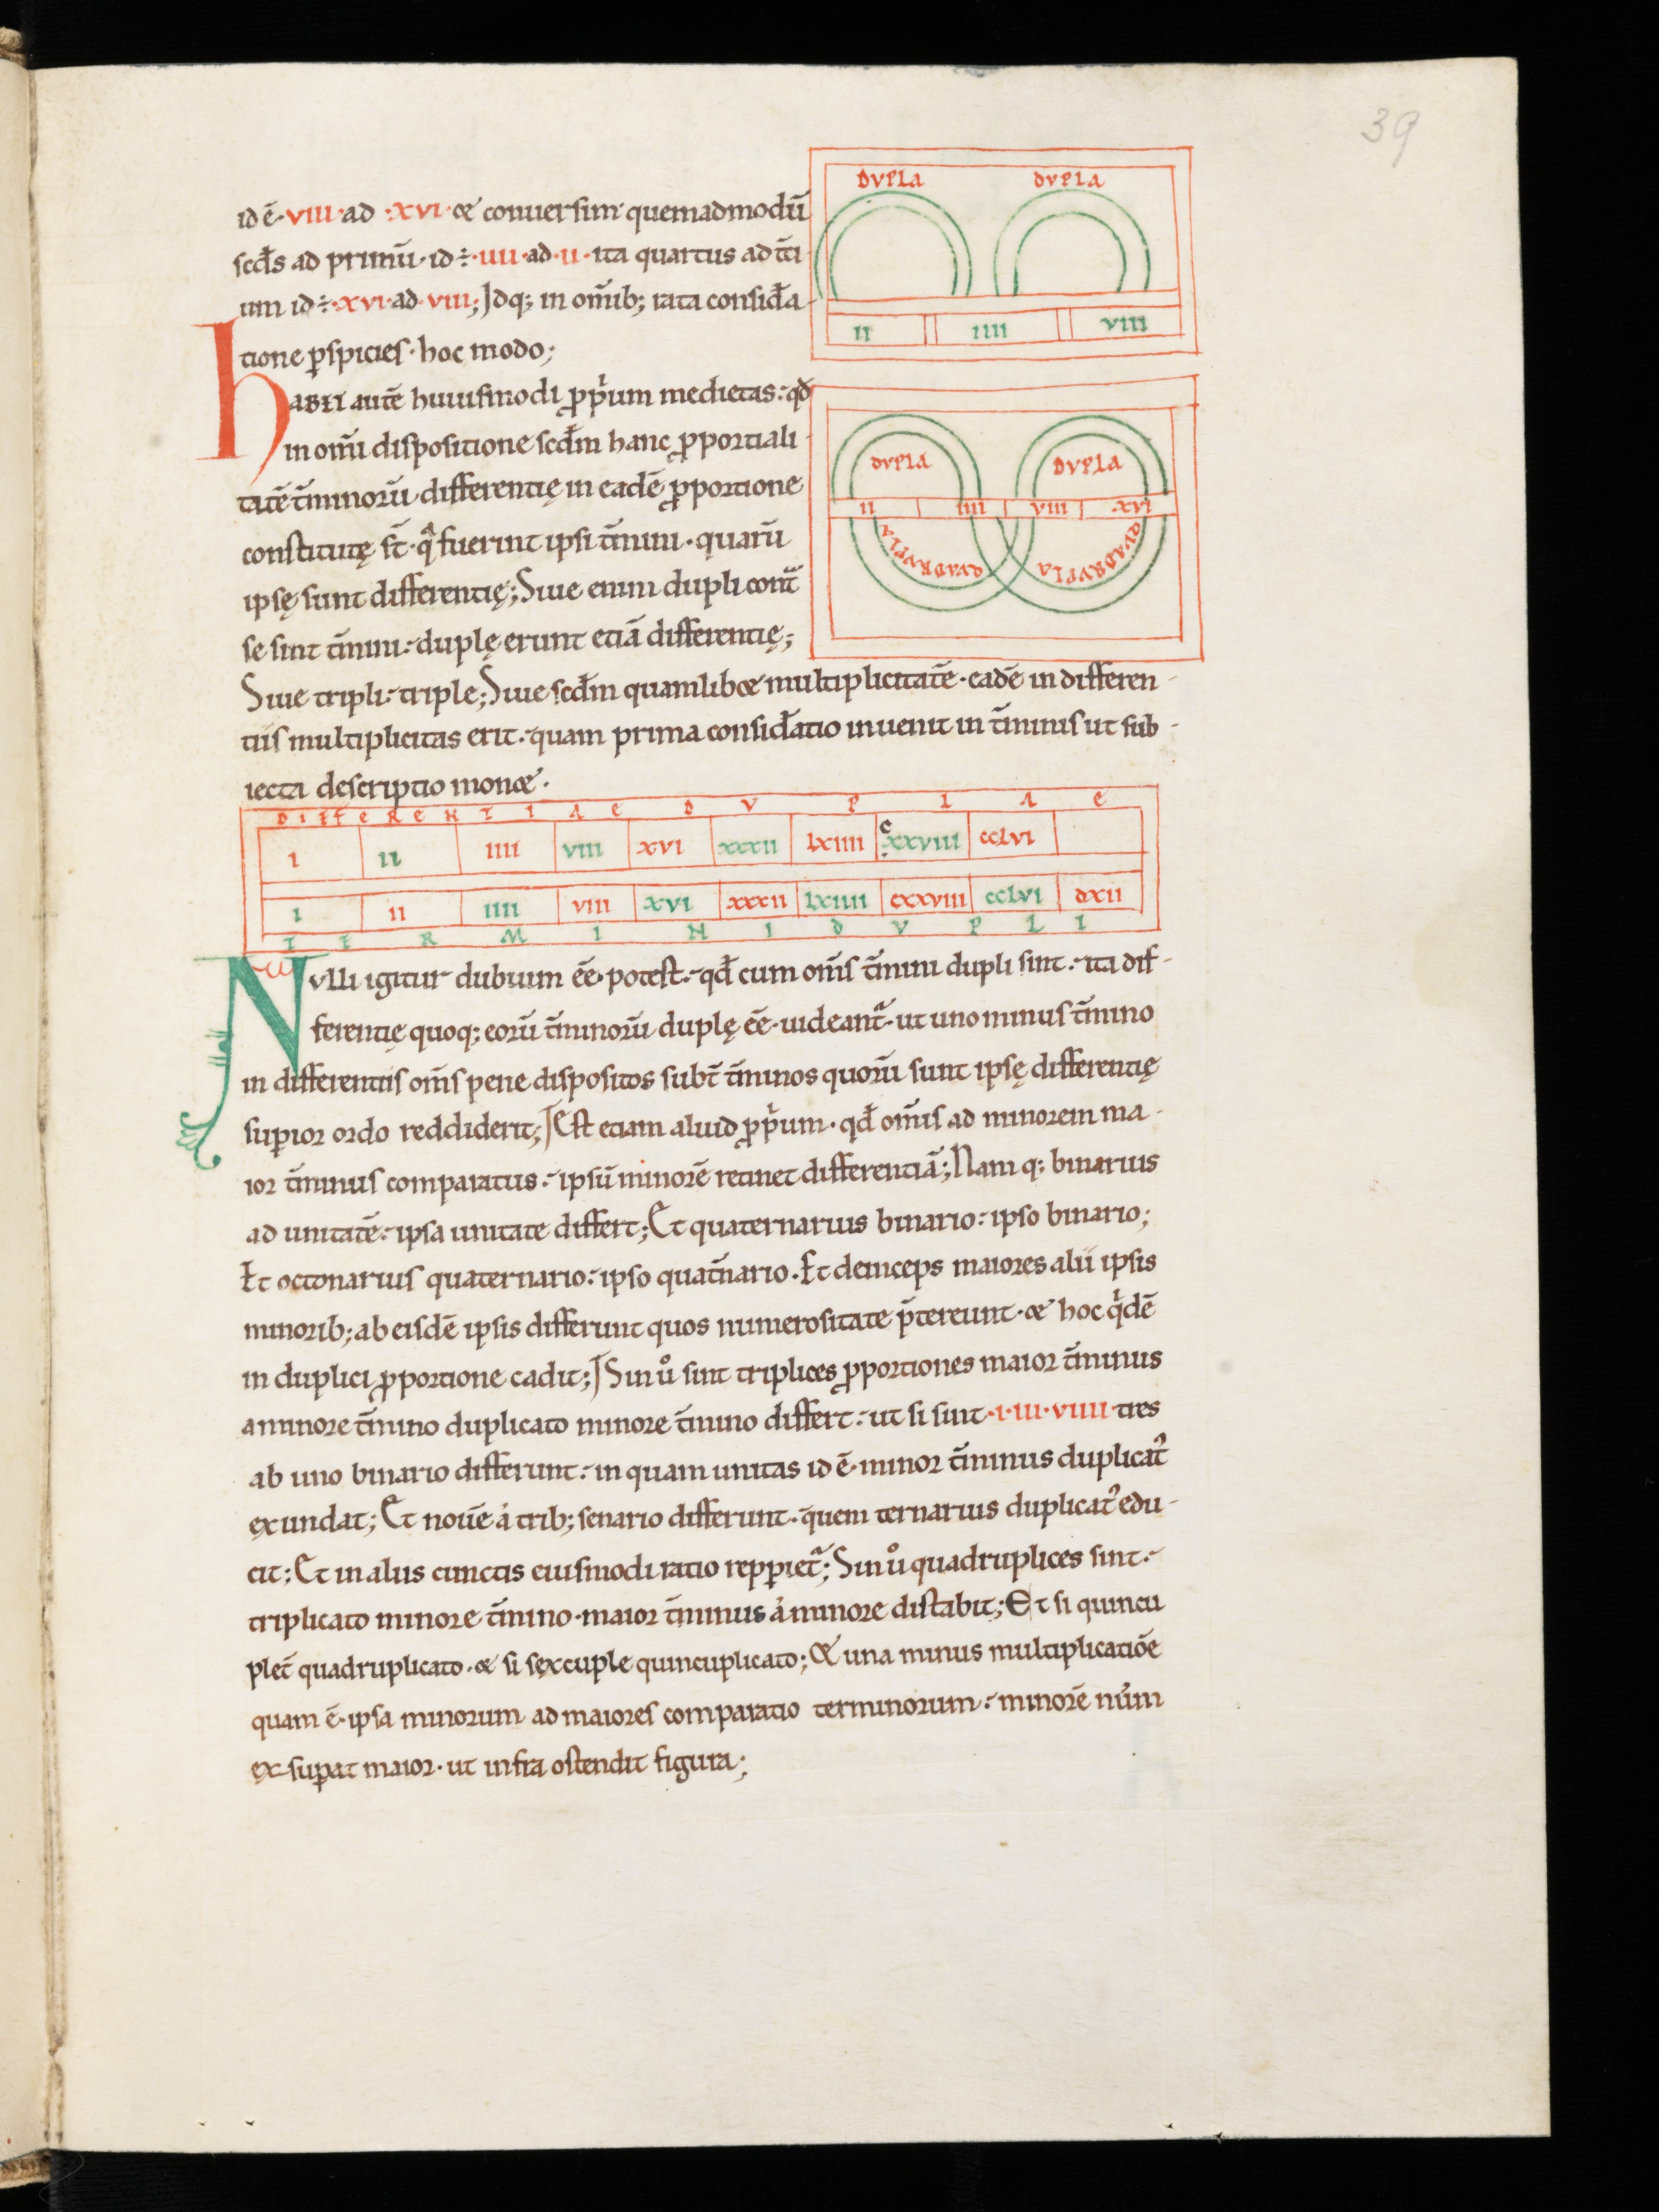 39
id ē· VIII· ad ·XVI· & conuersim quemadmodū
scđs ad primū· id ÷ ·IIII· ad ·II· ita quartus ad t̄ti
um id ÷ ·XVI· ad ·VIII·; Idq; in om̄ib; rata consid̄a
tione ꝑspicies· hoc modo;
DVPLA DVPLA
II IIII VIII
habet autē huiusmodi ꝓpͥum medietas· qđ
in om̄i dispositione scđm hanc ꝓportiali
tatē t̄minorū differentię in eadē ꝓportione
constitutę st̄· qͣ fuerint ipsi t̄mini· quarū
ipsę sunt differentię; Siue enim dupli cont̄
se sint t̄mini· duplę erunt etiā differentię;
DVPLA DVPLA
II IIII VIII XVI
QVADRVPLA QVADRVPLA
Siue tripli· triple; Siue scđm quamlib& multiplicitatē· eadē in differen-
tiis multiplicitas erit· quam prima consid̄atio inuenit in t̄minis ut sub-
iecta descriptio mon&·
DIFFERENTIAE DVPLAE
I II IIII VIII XVI XXXII LXIIII CXXVIII CCLVI
I II IIII VIII XVI XXXII LXIIII CXXVIII CCLVI DXII
TERMINI DVPLI
Nvlli igitur dubium ēe potest· qđ cum om̄s t̄mini dupli sint· ita dif-
ferentię quoq; eorū t̄minorū duplę ēe uideantͣ· ut uno minus t̄mino
in differentiis om̄s pene dispositos subt̄ t̄minos quorū sunt ipsę differentię
supior ordo reddiderit; Est etiam aliud ꝓpͥum· qđ om̄is ad minorem ma-
ior t̄minus comparatus· ipsū minorē retinet differentiā; Nam q; binarius
ad unitatē· ipsa unitate differt; Et quaternarius binario· ipso binario;
Et octonarius quaternario· ipso quat̄nario· Et deinceps maiores alii ipsis
minorib; ab eisdē ipsis differunt quos numerositate p̄tereunt· & hoc qͥdē
in duplici ꝓportione cadit; Sin uͦ sint triplices ꝓportiones maior t̄minus
a minore t̄mino duplicato minore t̄mino differt· ut si sint ·I·III·VIIII· tres
ab uno binario differunt· in quam unitas id ē minor t̄minus duplicat᾽
exundat; Et nouē a trib; senario differunt· quem ternarius duplicat᾽ edu-
cit; Et in aliis cunctis eiusmodi ratio repꝑietͣ; Sin uͦ quadruplices sint·
triplicato minore t̄mino· maior t̄minus a minore distabit; Et si quincu
plet̄ quadruplicato· & si sexcuple quincuplicato; & una minus multiplicatiōe
quam ē ipsa minorum ad maiores comparatio terminorum· minorē nūm
exsuꝑat maior· ut infra ostendit figura;